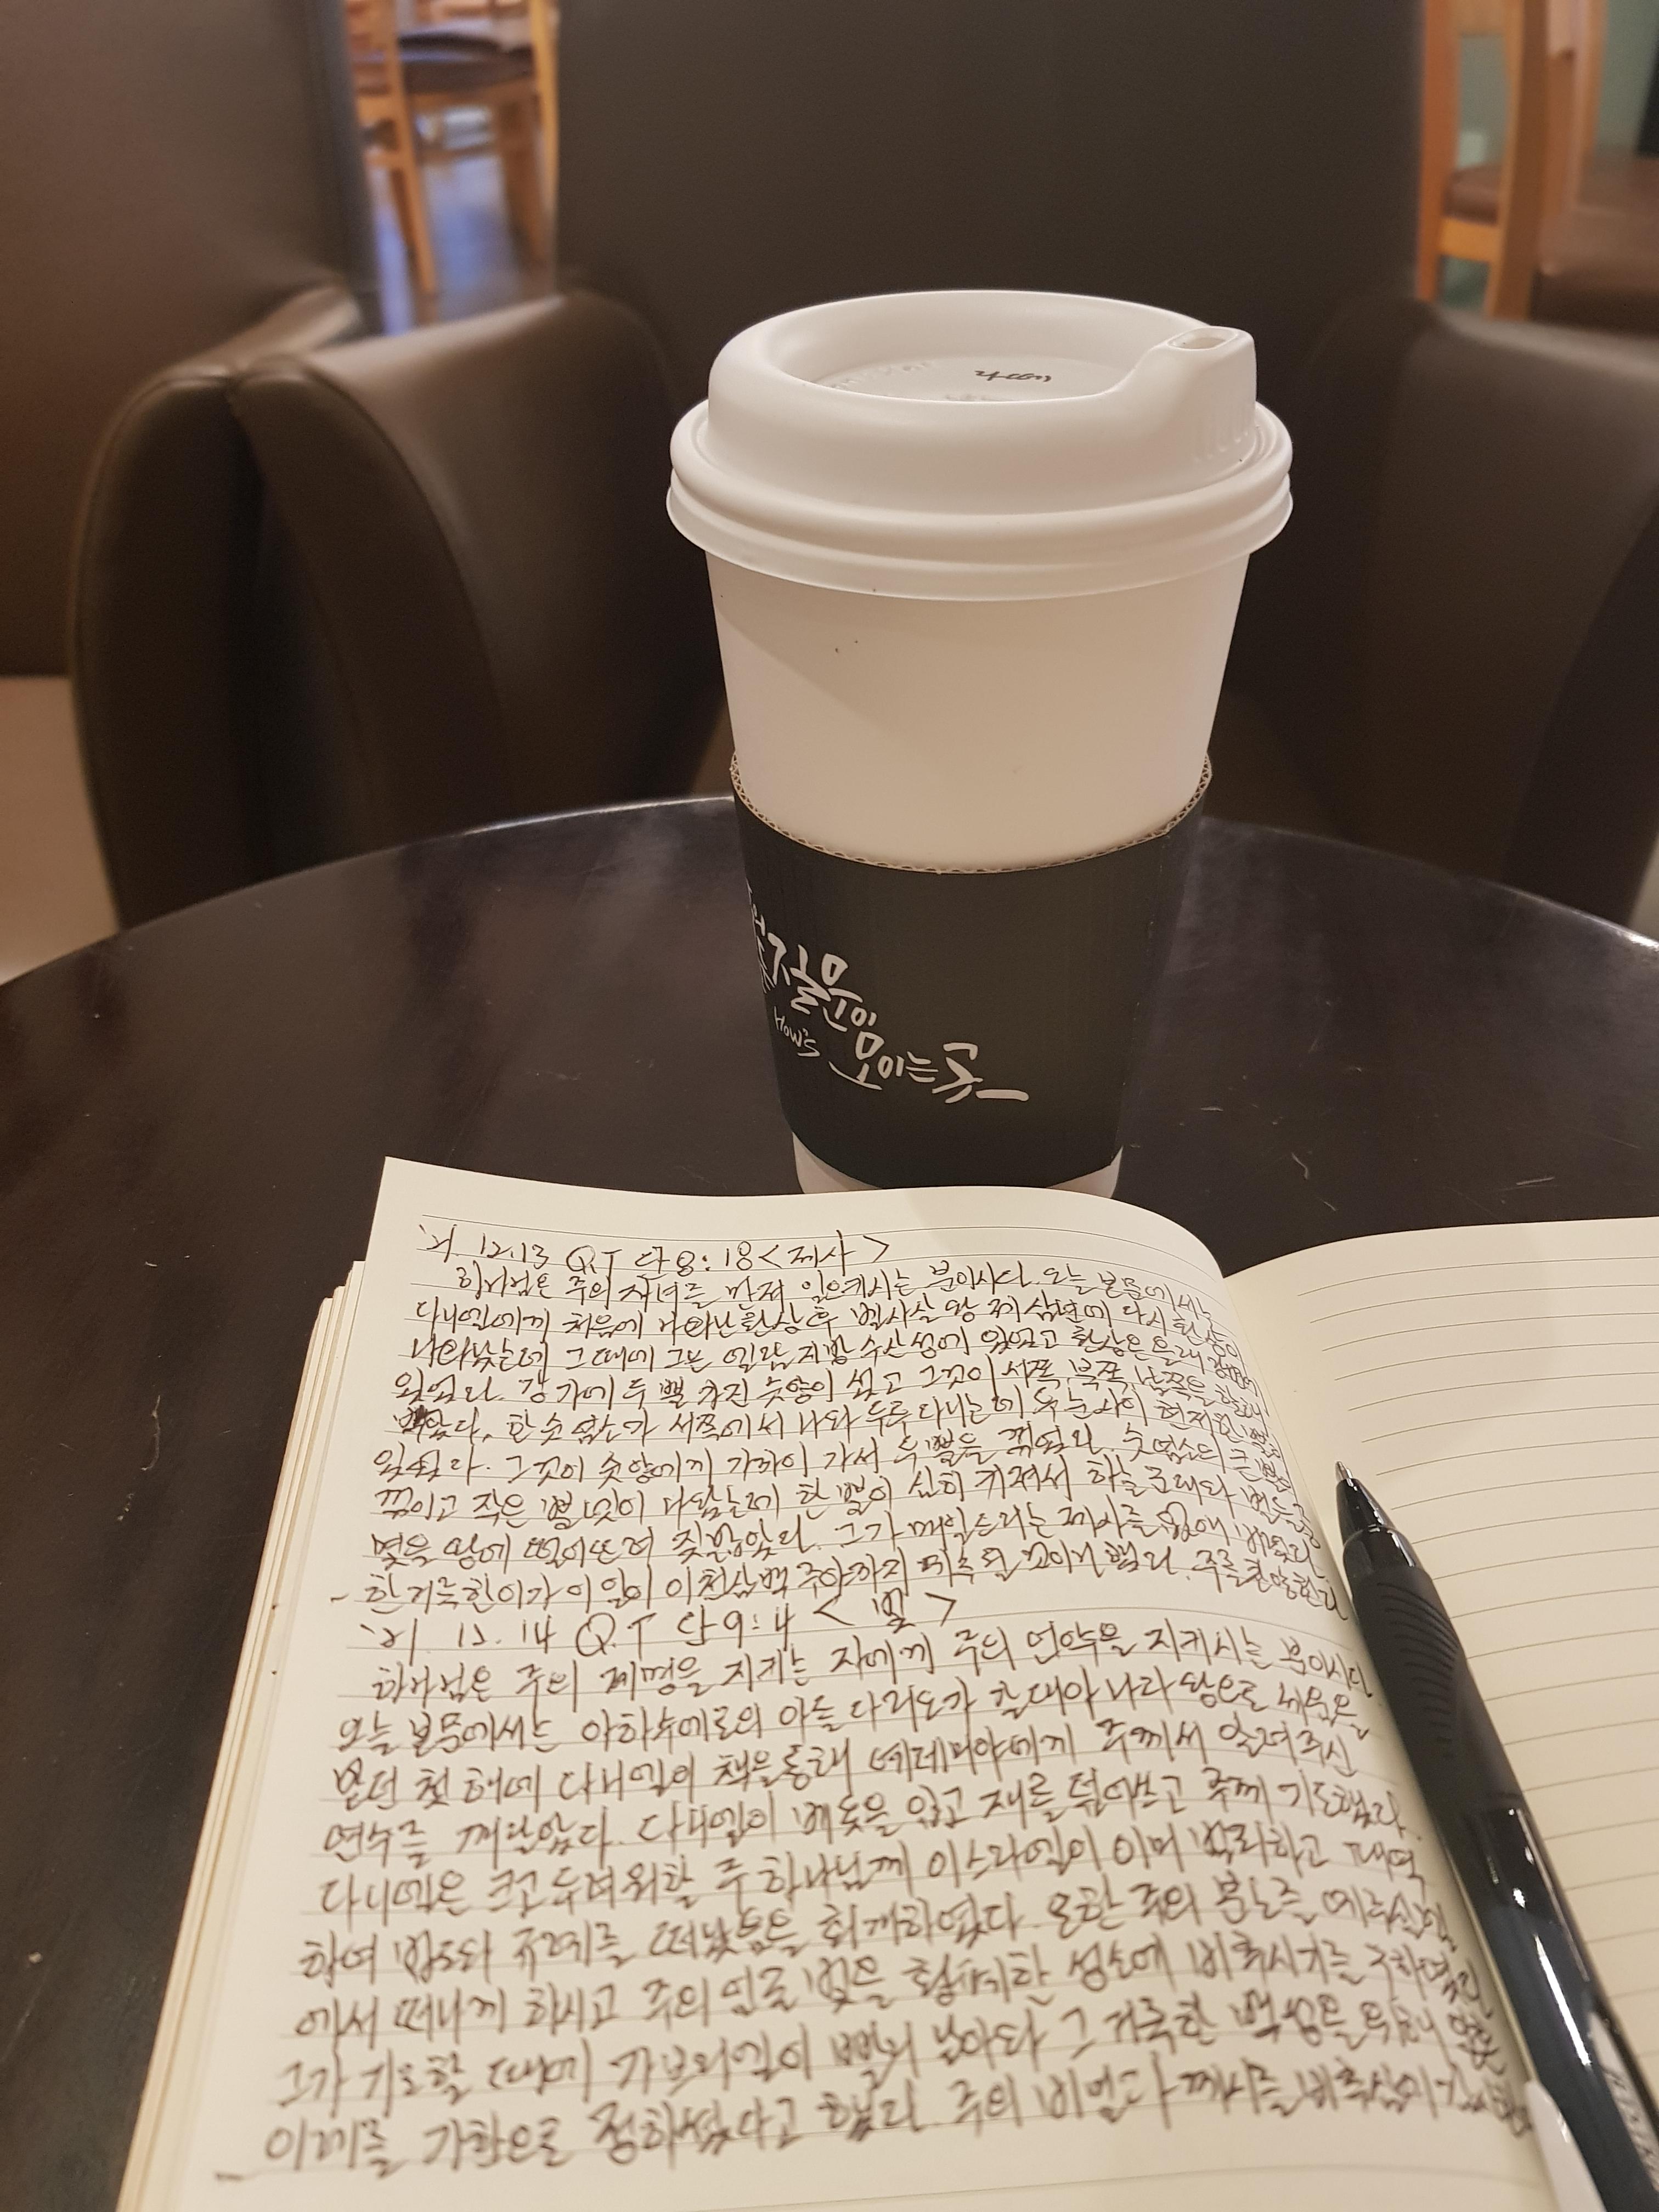 젊은이
How's
모이는 곳
'21. 12.13 Q.T 단8:18 <제사>
하나님은 주의 자녀를 만져 일으키시는 분이시다. 오늘 본문에서는
다니엘에게 처음에 나타난 환상 후 벨사살 왕 제 삼년에 다시 환상이
나타났는데 그 때에 그는 엘람 지방 수산성에 있었고 환상은 을래 강변에
있었다. 강 가에 두 뿔 가진 숫양이 섰고 그것이 서쪽, 북쪽, 남쪽을 향해
받았다. 한 숫염소가 서쪽에서 나와 두루 다니는데 두 눈 사이 현저한 뿔이
있었다. 그것이 숫양에게 가까이 가서 두 뿔을 꺾었다. 숫염소의 큰 뿔이
꺾이고 작은 뿔 넷이 나왔는데 한 뿔이 심히 커져서 하늘 군대와 별들 중
몇을 땅에 떨어뜨려 짓밟았다. 그가 매일 드리는 제사를 없애 버렸다.
- 한 거룩한 이가 이 일이 이천삼백 주야까지 미촉될 것이라 했다. 주를 찬양한다
'21. 12. 14 Q.T 단9:4 <벌>
하나님은 주의 계명을 지키는 자에게 주의 언약을 지키시는 분이시다.
오늘 본문에서는 아하수에로의 아들 다리오가 갈대아 나라 왕으로 세움을
받던 첫 해에 다니엘이 책을 통해 예레미야에게 주께서 알려주신
연수를 깨달았다. 다니엘이 베옷을 입고 재를 뒤집어쓰고 주께 기도했다.
다니엘은 크고 두려워할 주 하나님께 이스라엘이 이미 범죄하고 패역
하여 법도와 규례를 떠났음을 회개하였다. 또한 주의 분노를 예루살렘
에서 떠나게 하시고 주의 얼굴 빛을 황폐한 성소에 비추시기를 구하였다.
그가 기도할 때에 가브리엘이 빨리 날아와 그 거룩한 백성을 위하여
- 이레를 기한으로 정하셨다고 했다. 주의